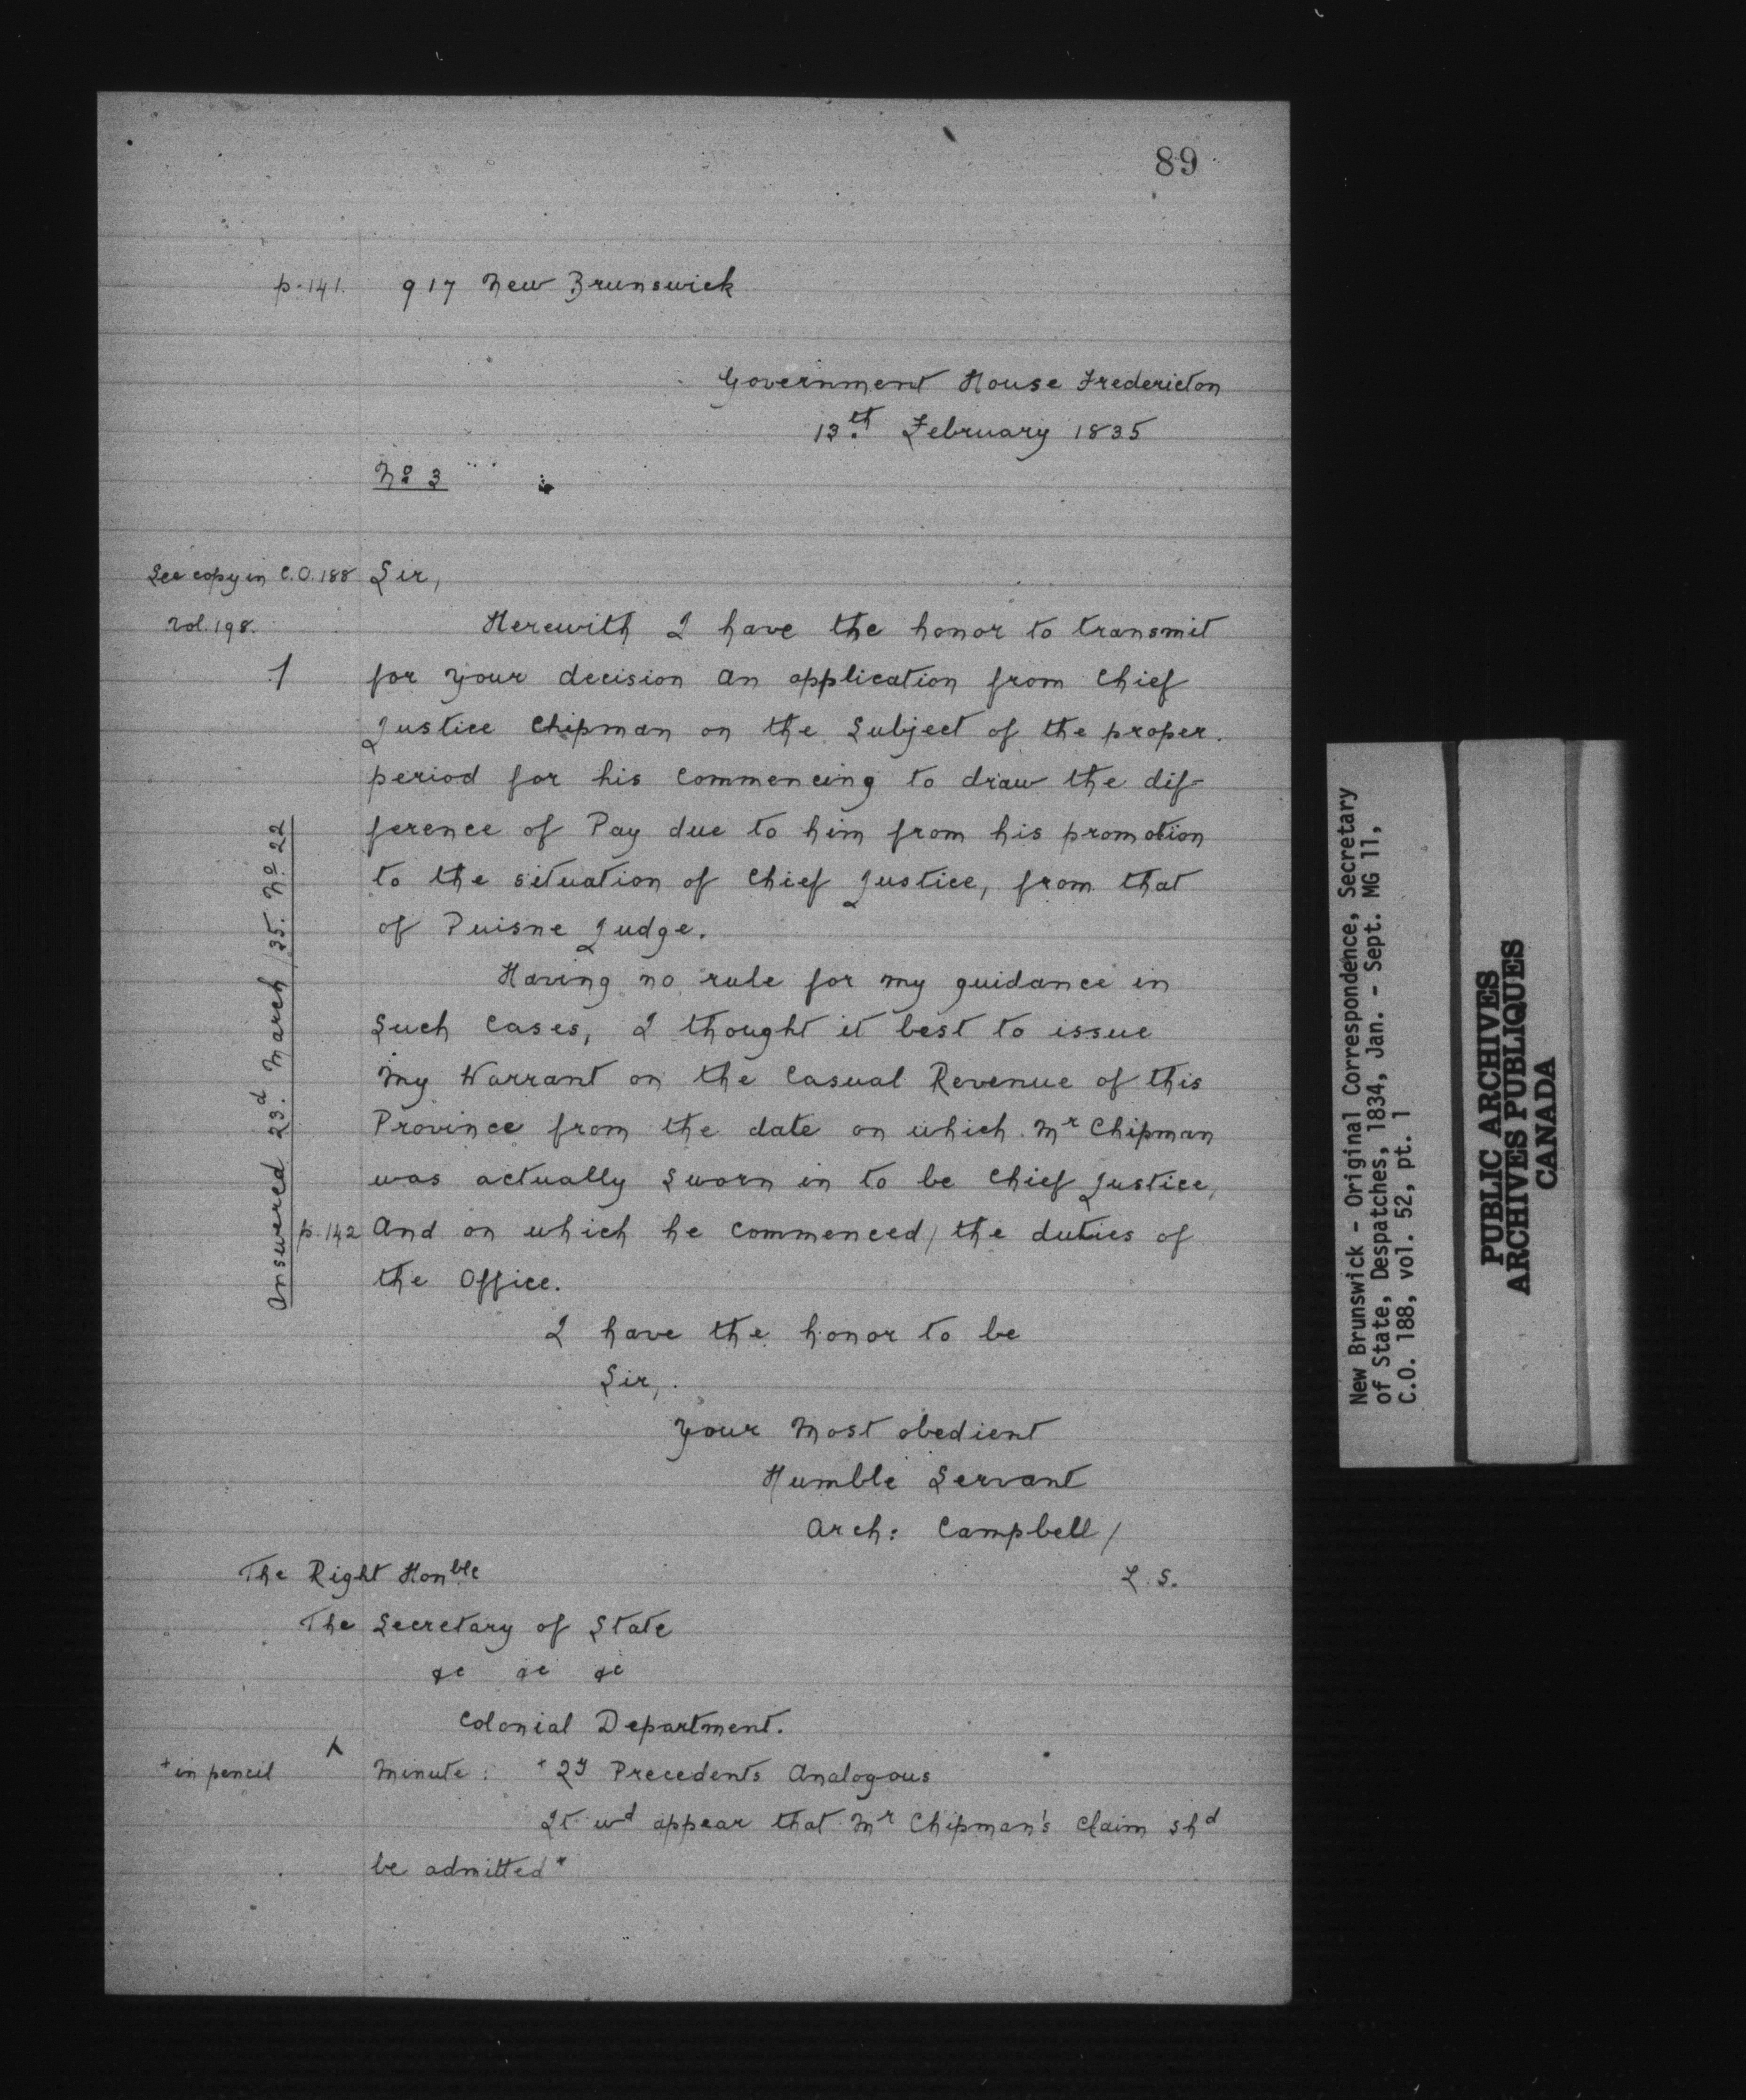 89
p. 141. 917 New Brunswick
Government House Fredericton
13th. February 1835
No 3
See copy in C.O. 188
Vol. 198.
Sir,
Herewith I have the honor to transmit
for your decision an application from Chief
Justice Chipman on the Subject of the proper
period for his Commencing to draw the dif-
ference of Pay due to him from his promotion
to the situation of Chief Justice, from that
of Puisne Judge.
Having no rule for my guidance in
Such Cases, I thought it best to issue
My Warrant on the Casual Revenue of this
Province from the date on which Mr Chipman
was actually Sworn in to be Chief Justice,
p. 142 And on which he Commenced / the duties of
the Office.
Answered 23d. March /35. No 22
I have the honor to be
Sir,
Your Most obedient
Humble Servant
Arch: Campbell /
L. S.
The Right Honble
The Secretary of State
&c &c &c
Colonial Department.
+ in pencil
Minute: + Precedents Analogous
It wd appear that Mr Chipman's Claim shd
be admitted +
New Brunswick - Original Correspondence, Secretary
of State, Despatches, 1834, Jan. - Sept. MG 11,
C.O. 188, vol. 52, pt. 1
PUBLIC ARCHIVES
ARCHIVES PUBLIQUES
CANADA